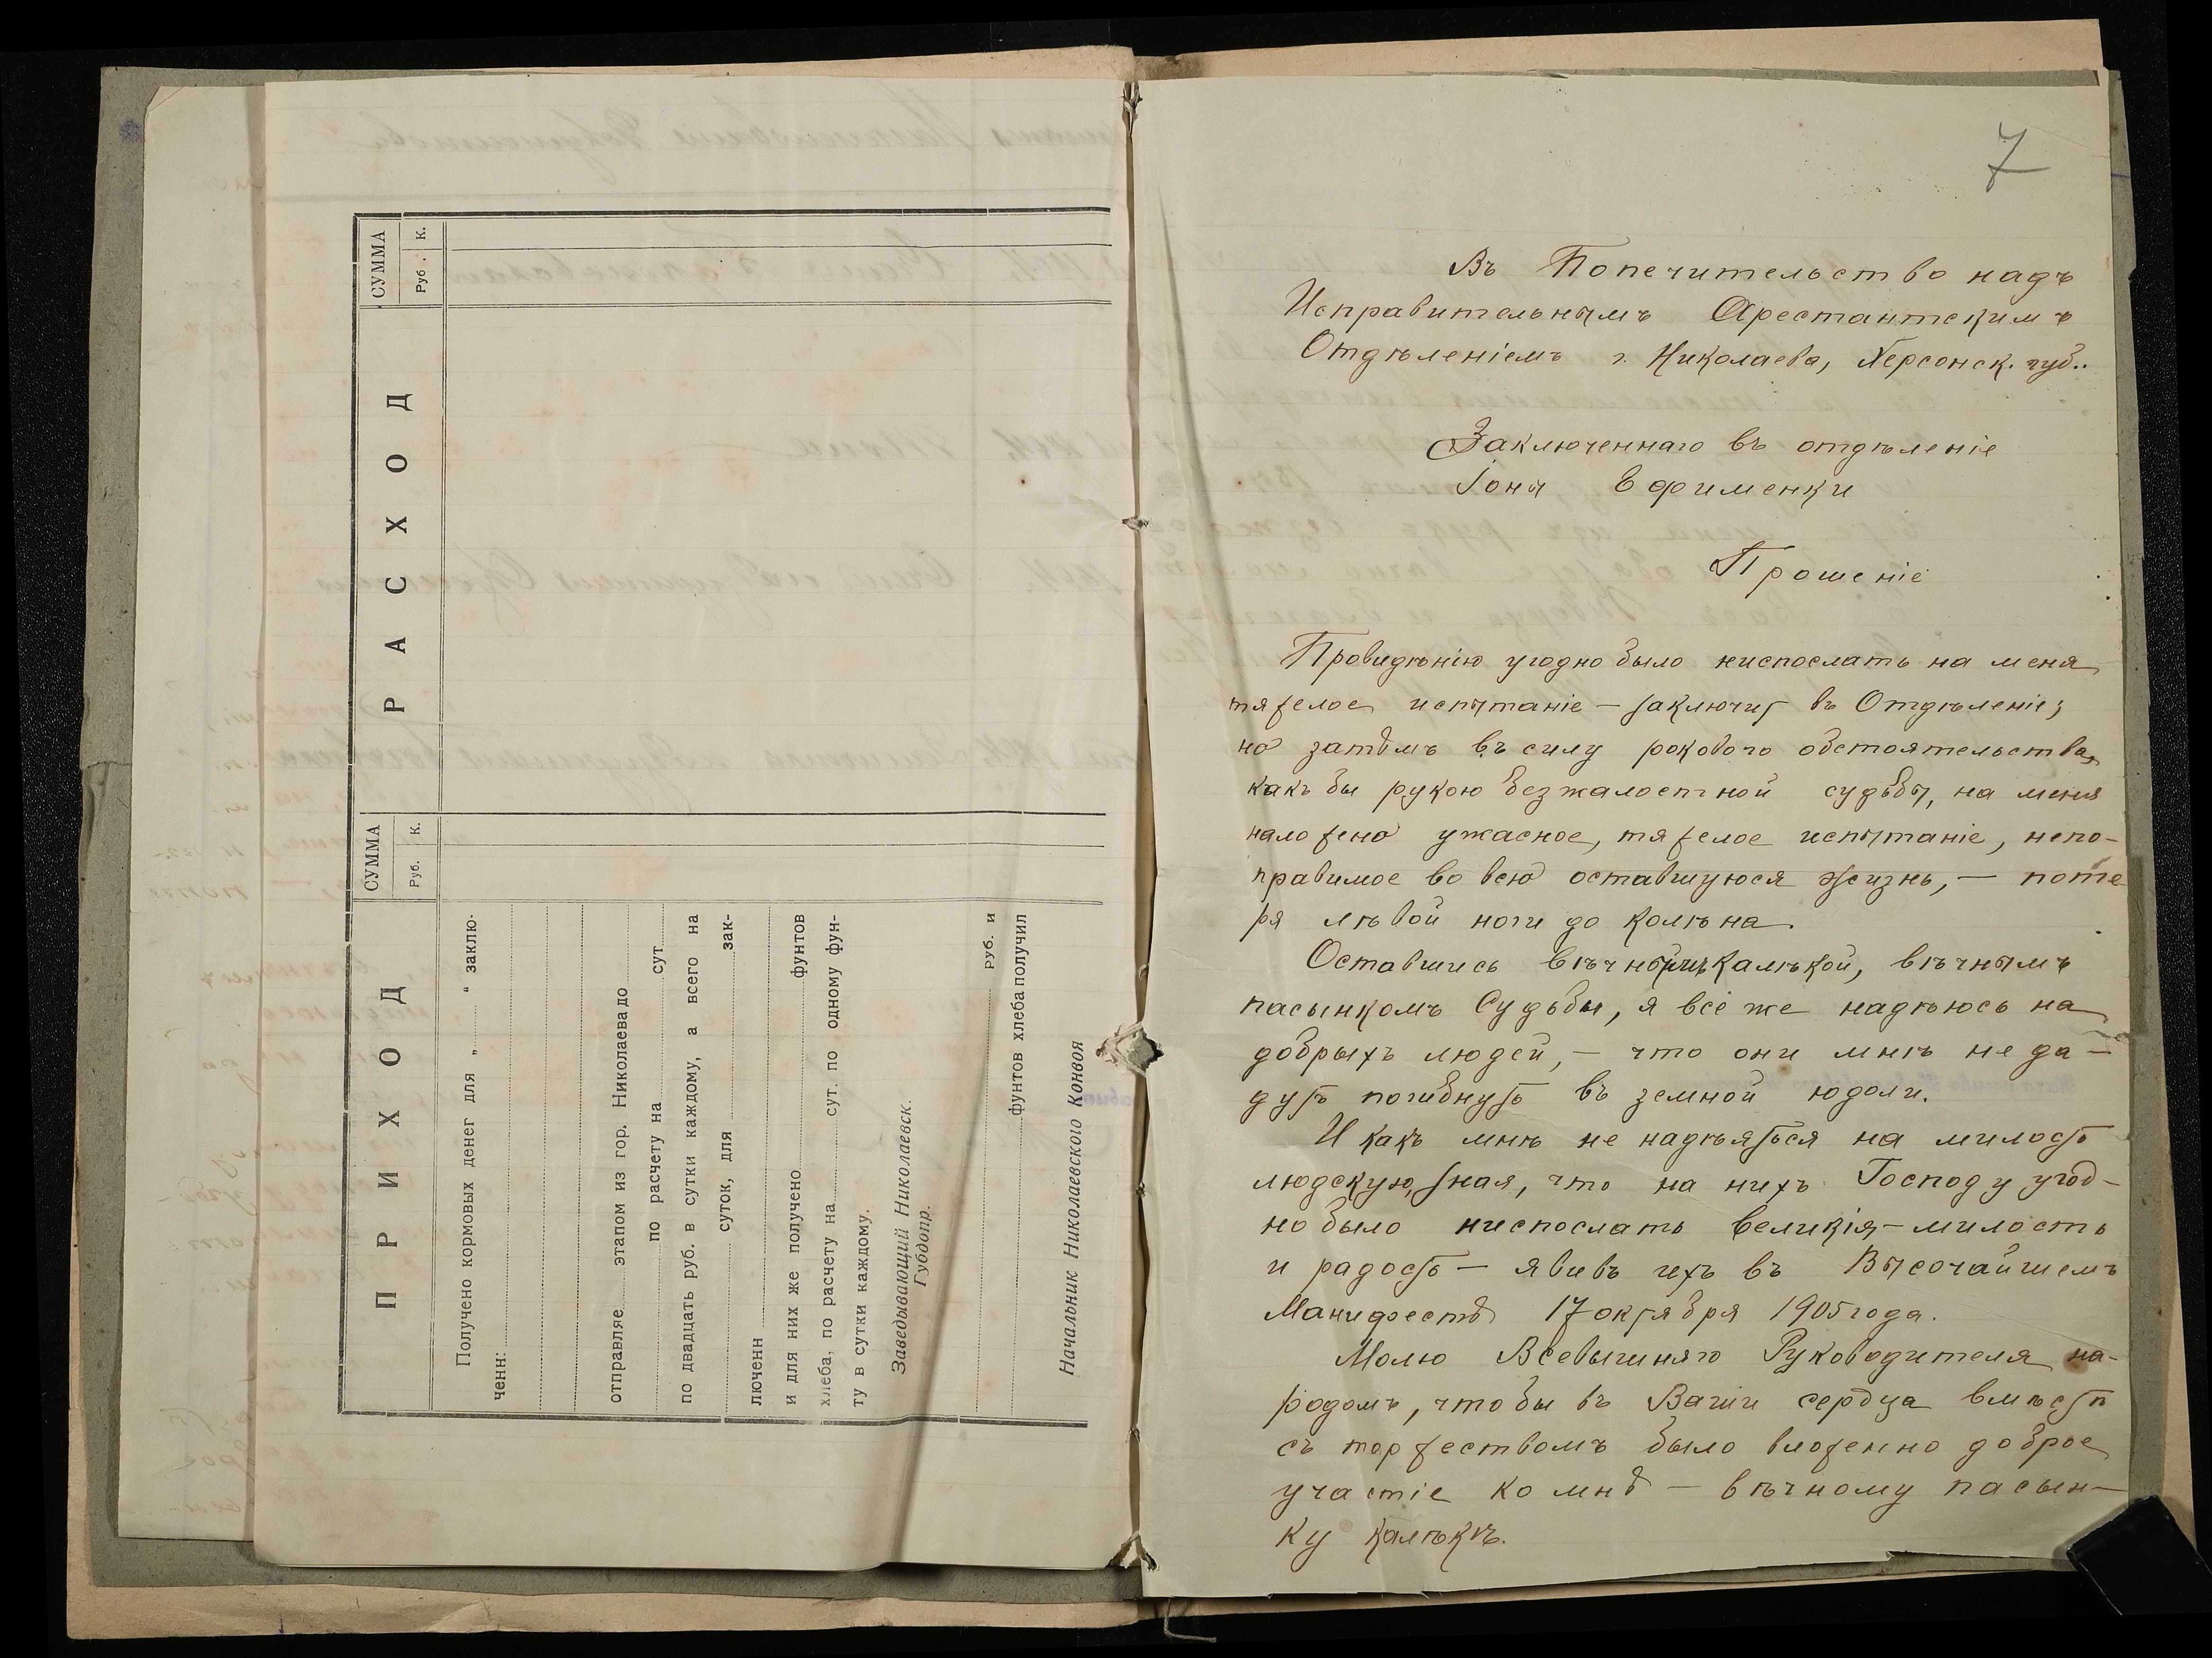 ПРИХОД
СУММА
Руб. К.
РАСХОД
СУММА
Руб. К.
Получено кормовых денег для „ “ заклю-
ченн:
отправляе этапом из гор. Николаева до
по расчету на сут
по двадцать руб. в сутки каждому, а всего на
суток, для зак-
люченн
и для них же получено фунтов
хлеба, по расчету на сут. по одному фун-
ту в сутки каждому.
Заведывающий Николаевск.
Губдопр.
руб. и
фунтов хлеба получил
Начальник Николаевского Конвоя
7
Въ Попечительство надъ
Исправительнымъ Арестантскимъ
Отдѣленіемъ г. Николаева, Херсонск. губ..
Заключеннаго въ отдѣленіе
Іоны Ефименки
Прошеніе
Провидѣнію угодно было ниспослать на меня
тяжелое испытаніе — заключить въ Отдѣленіе;
но затѣмъ въ силу рокового обстоятельства,
какъ бы рукою безжалостной судьбы, на меня
наложено ужасное, тяжелое испытаніе, непо-
правимое во всю оставшуюся жизнь, — поте
ря лѣвой ноги до колѣна.
Оставшись вѣчнымъ калѣкой, вѣчнымъ
пасынкомъ Судьбы, я всё же надѣюсь на
добрыхъ людей, — что они мнѣ не да-
дутъ погибнуть въ земной юдоли.
И какъ мнѣ не надѣяться на милость
людскую, зная, что на нихъ Господу угод-
но было ниспослать великія — милость
и радость — явивъ ихъ въ Высочайшемъ
Манифестѣ 17 октября 1905 года.
Молю Всевышняго Руководителя на-
родомъ, чтобы въ Ваши сердца вмѣстѣ
съ торжествомъ было вложенно доброе
участіе ко мнѣ — вѣчному пасын-
ку калѣкѣ.